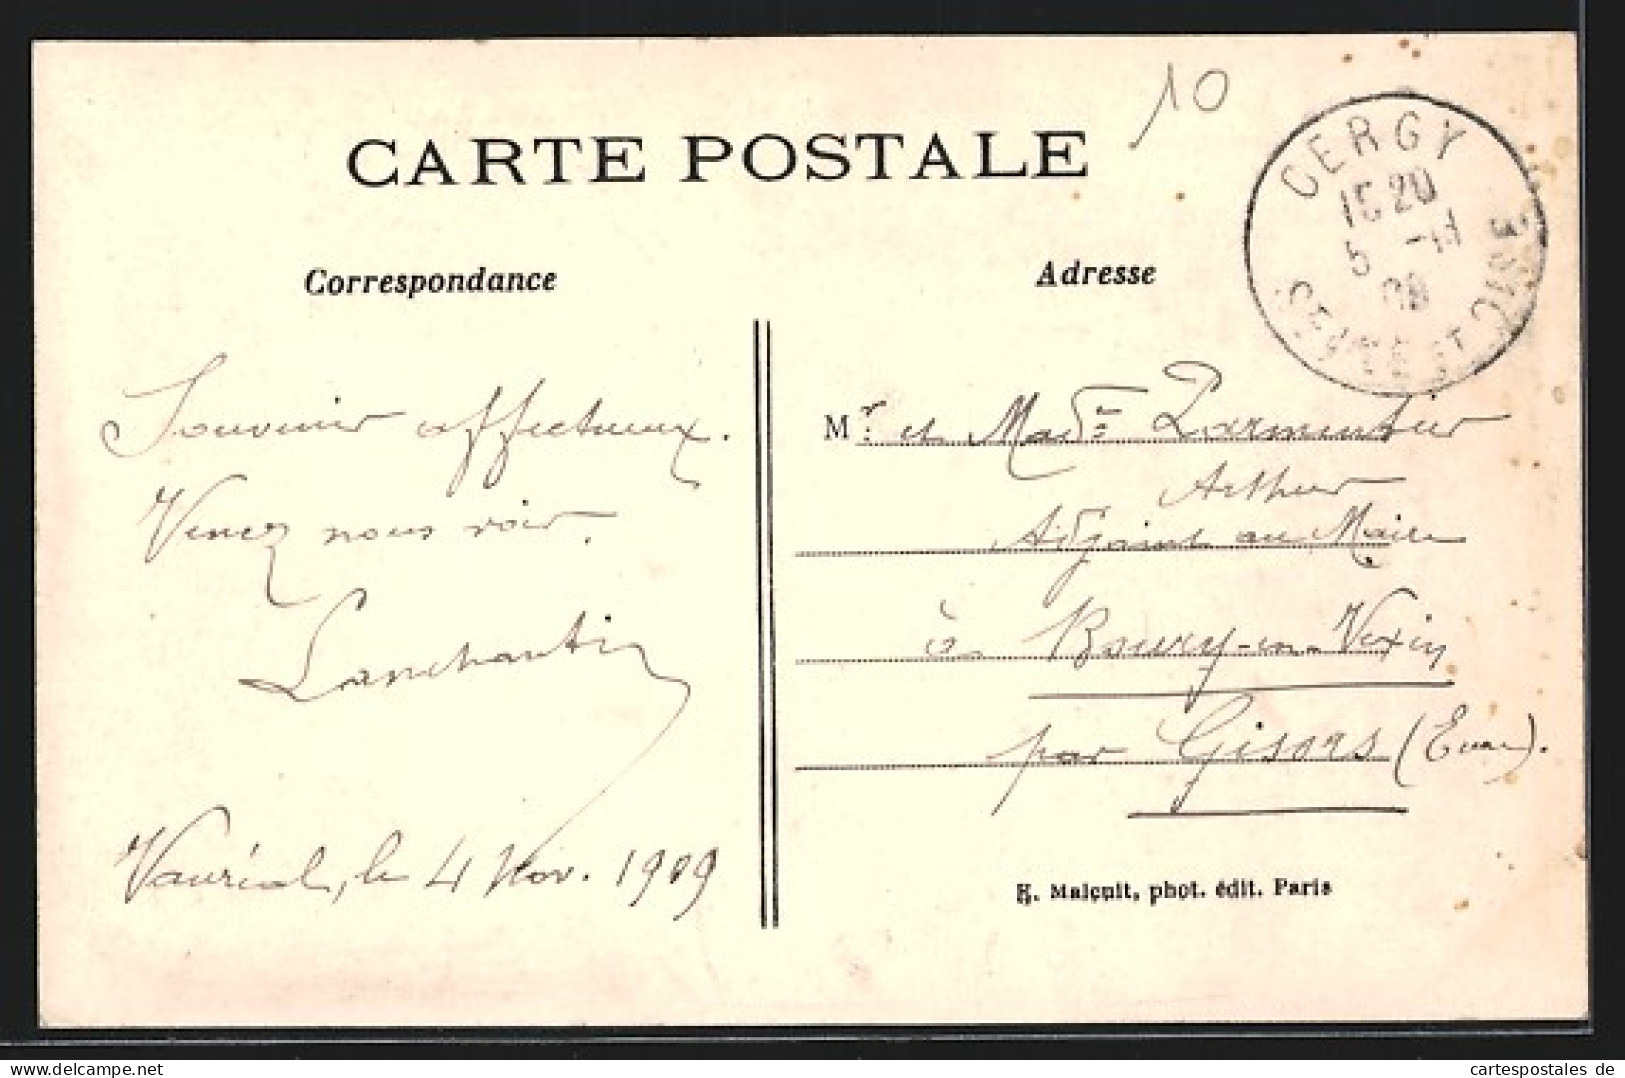 10
CARTE POSTALE
CERGY
15 20
5 -11
09
SEINE-ET-OISE
Correspondance
Adresse
Souvenir affectueux.
Venez nous voir.
Lanchantin
Vauréal, le 4 Nov. 1909
Mr. et Made Parmentier
Arthur
Adjoint au Maire
à Boury-en-Vexin
par Gisors (Eure).
E. Malcuit, phot. édit. Paris
cartespostales de